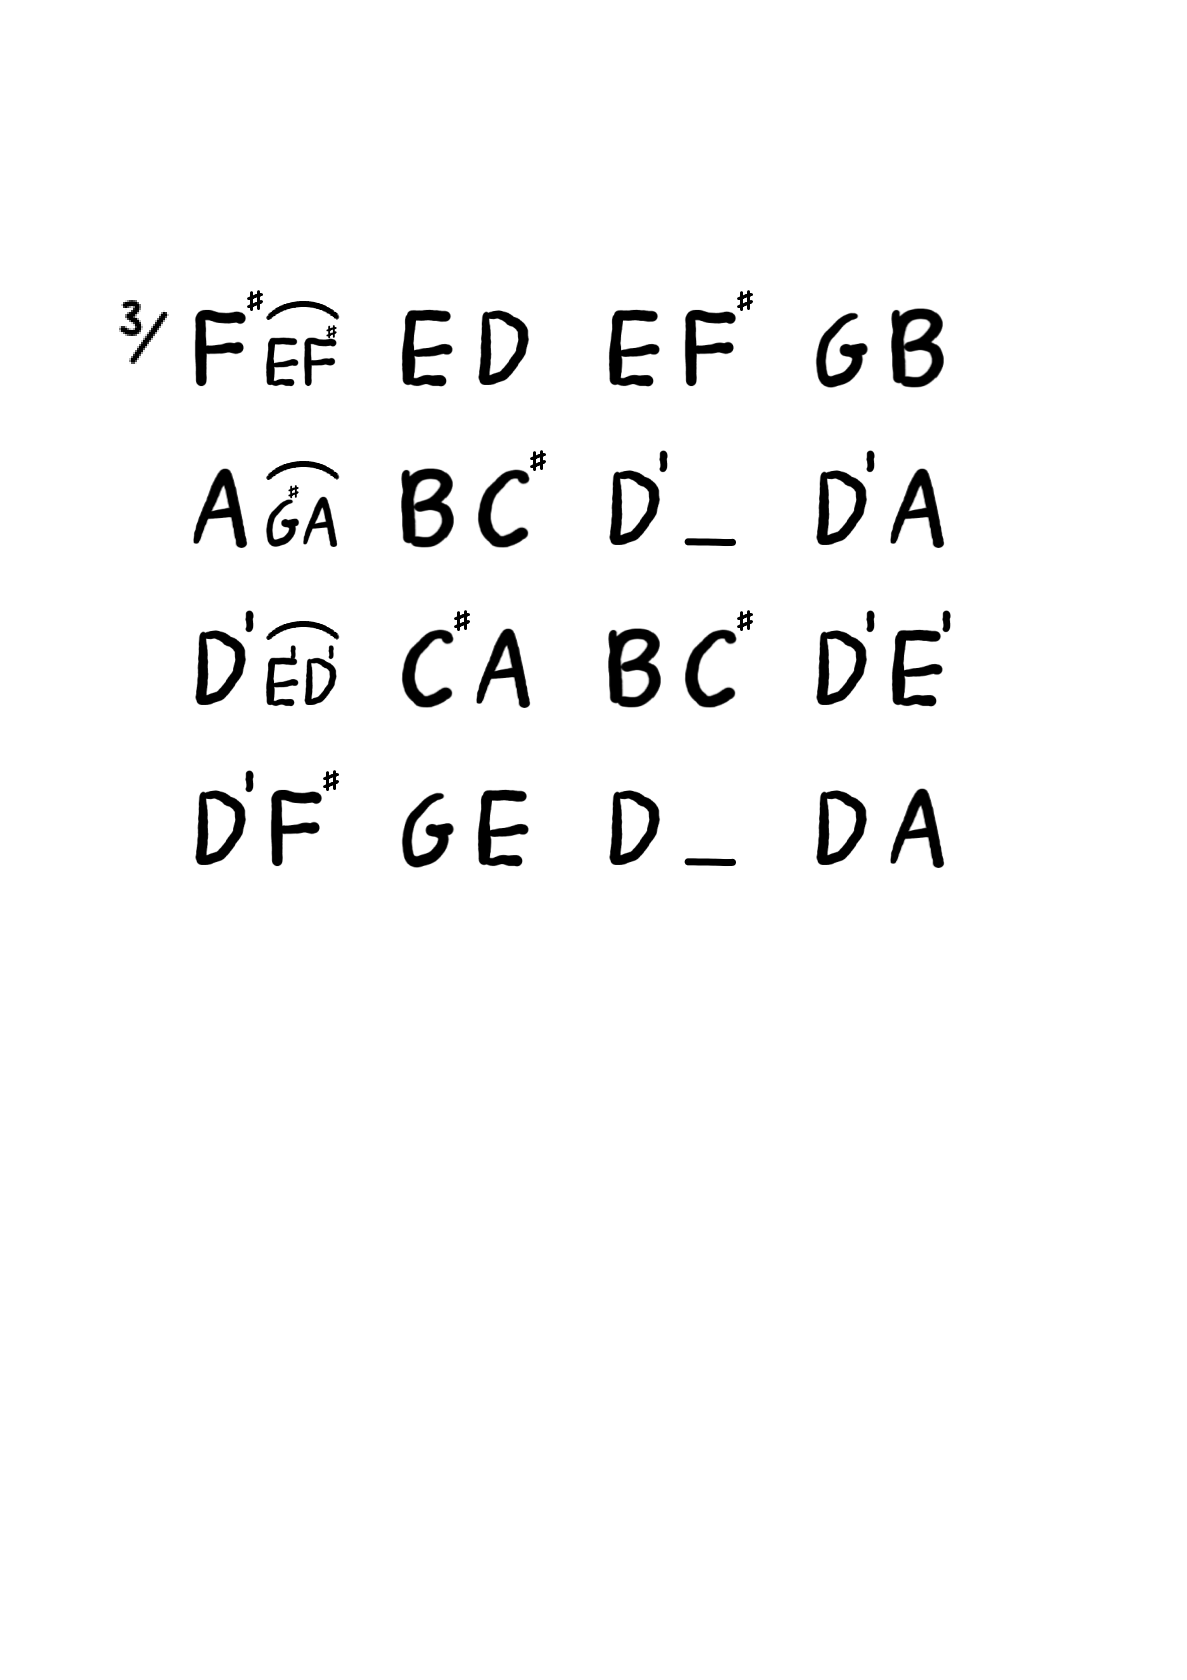 3/ F♯ EF♯ ED EF♯ GB
A G♯A BC♯ D'_ D'A
D' E'D' C♯A BC♯ D'E'
D'F♯ GE D_ DA